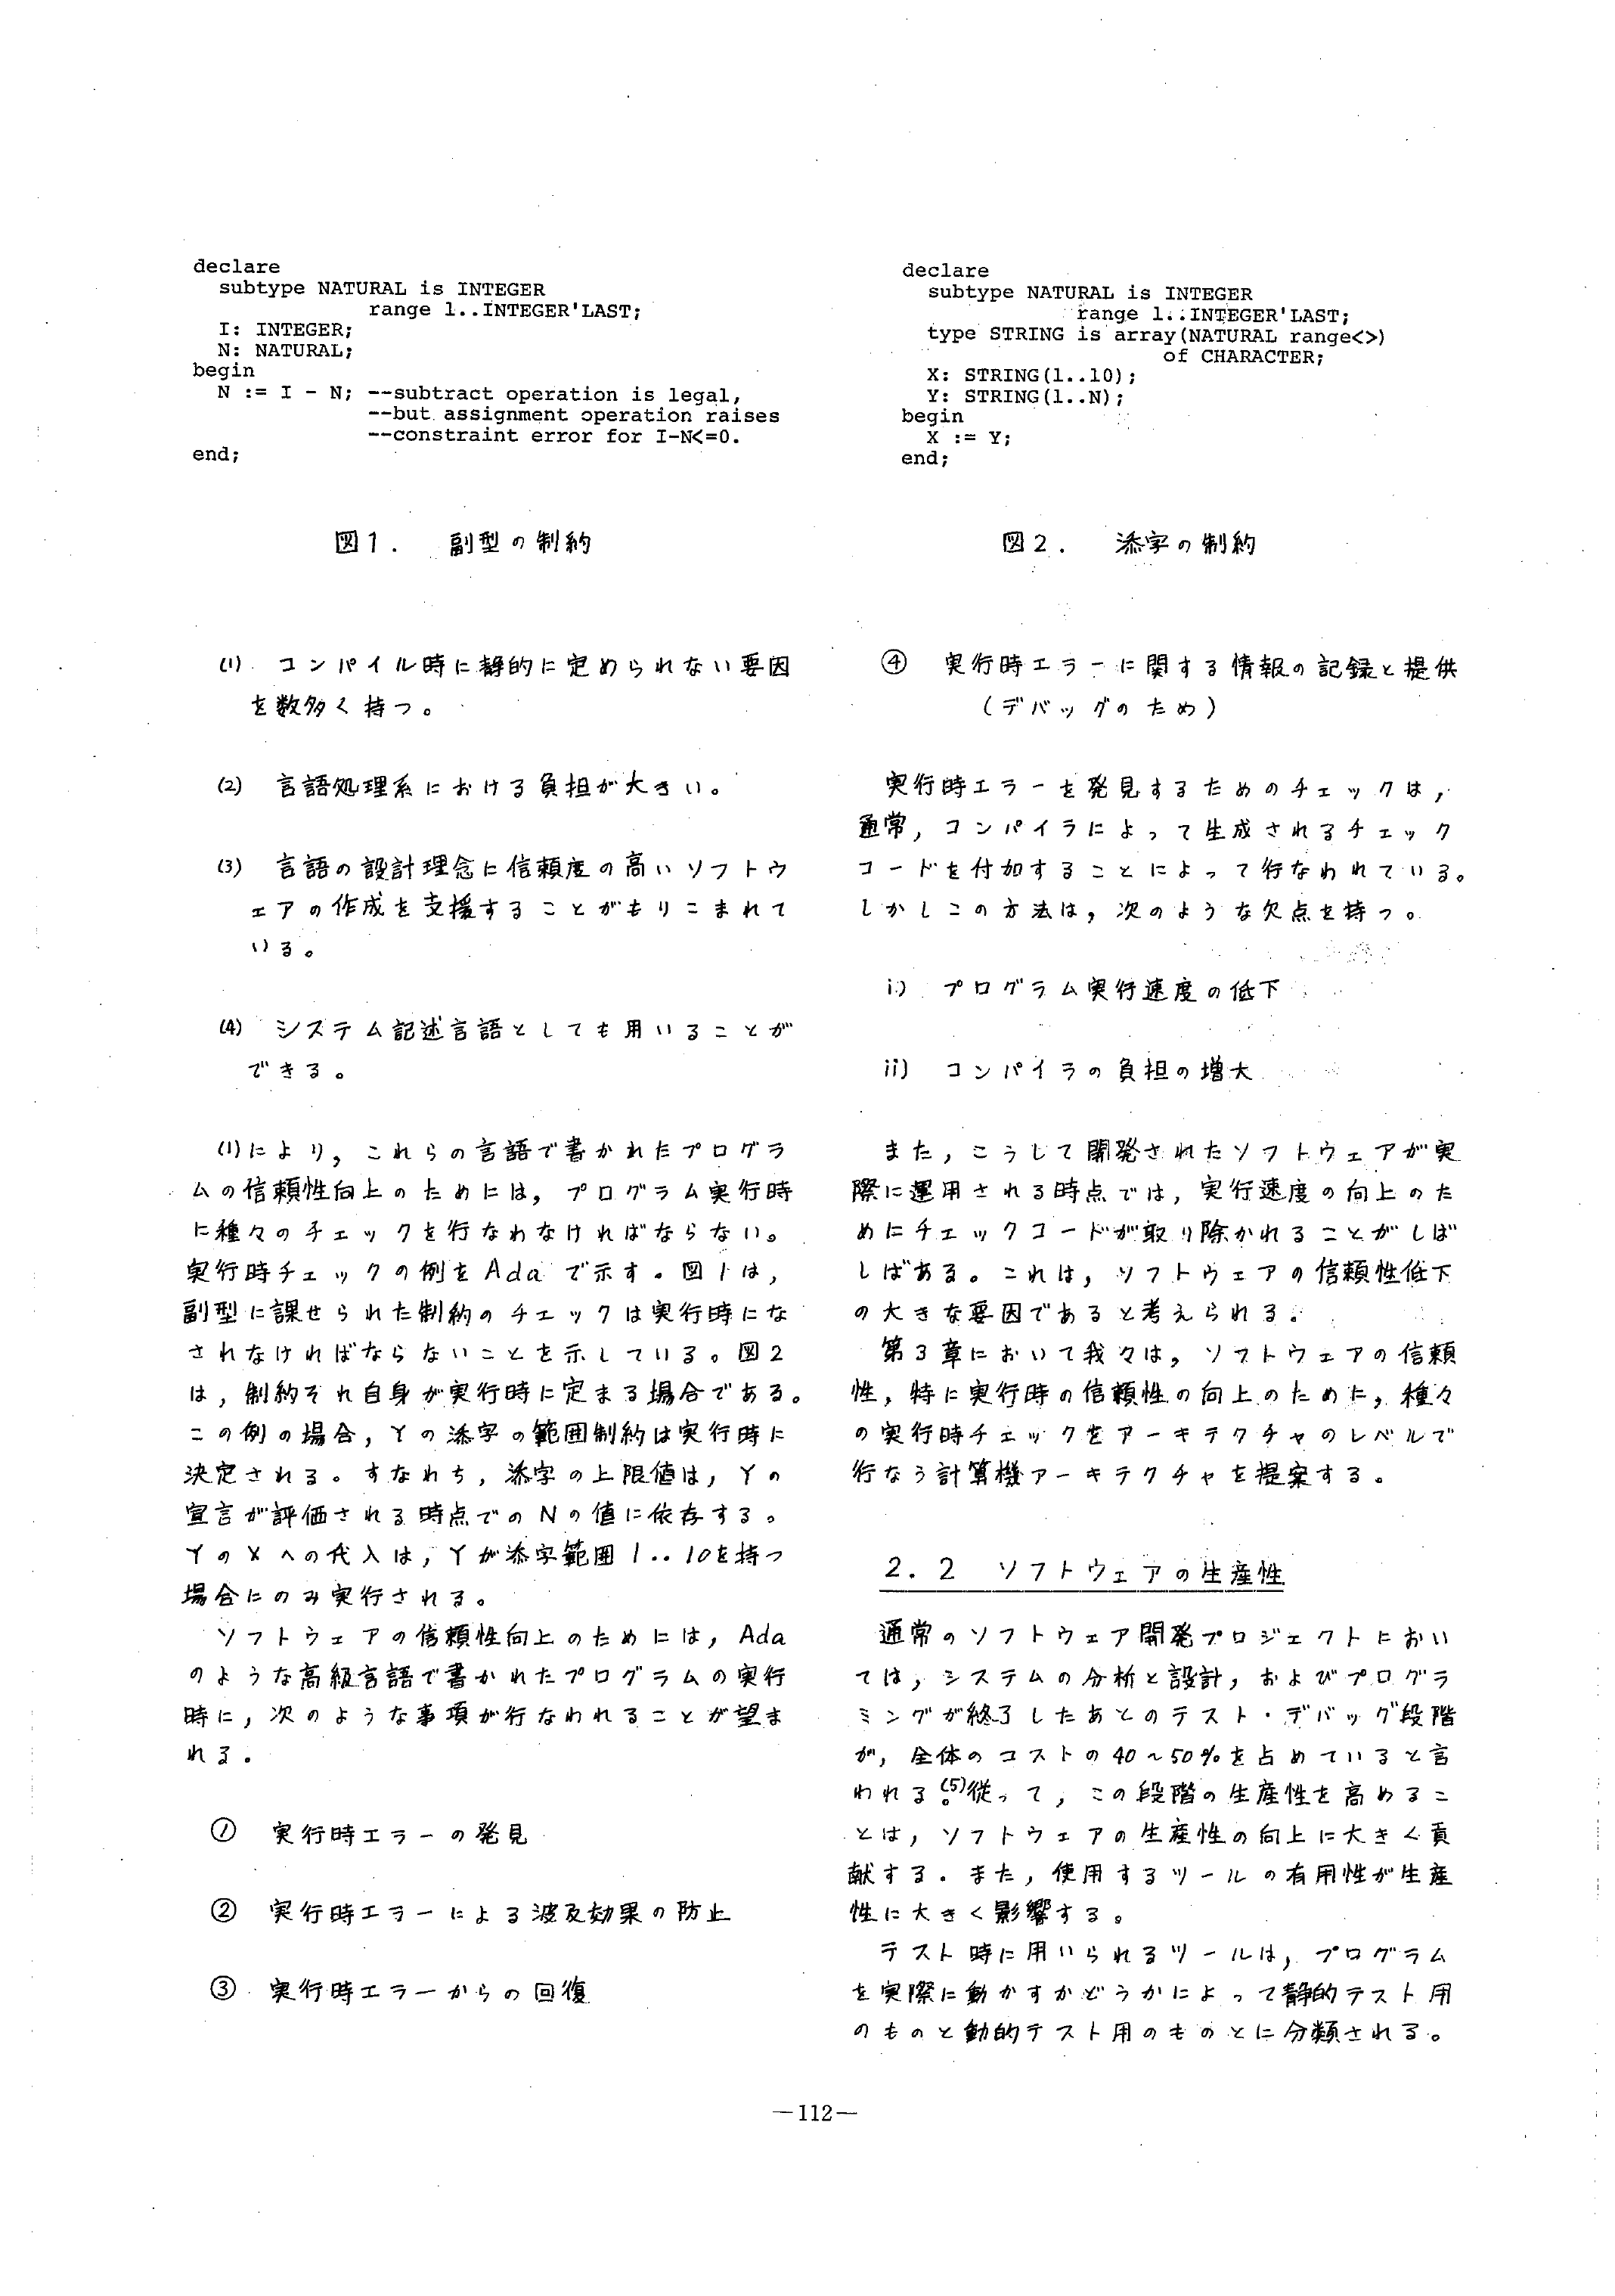 declare
  subtype NATURAL is INTEGER
              range 1..INTEGER'LAST;
  I: INTEGER;
  N: NATURAL;
begin
  N := I - N; --subtract operation is legal,
              --but assignment operation raises
              --constraint error for I-N<=0.
end;
図1.　副型の制約
(1) コンパイル時に静的に定められない要因
を数多く持つ。
(2) 言語処理系における負担が大きい。
(3) 言語の設計理念に信頼度の高いソフトウ
ェアの作成を支援することがもりこまれて
いる。
(4) システム記述言語としても用いることが
できる。
(1)により，これらの言語で書かれたプログラ
ムの信頼性向上のためには，プログラム実行時
に種々のチェックを行なわなければならない。
実行時チェックの例をAdaで示す。図1は，
副型に課せられた制約のチェックは実行時にな
されなければならないことを示している。図2
は，制約それ自身が実行時に定まる場合である。
この例の場合，Yの添字の範囲制約は実行時に
決定される。すなわち，添字の上限値は，Yの
宣言が評価される時点でのNの値に依存する。
YのXへの代入は，Yが添字範囲1..10を持つ
場合にのみ実行される。
ソフトウェアの信頼性向上のためには，Ada
のような高級言語で書かれたプログラムの実行
時に，次のような事項が行なわれることが望ま
れる。
① 実行時エラーの発見
② 実行時エラーによる波及効果の防止
③ 実行時エラーからの回復
declare
  subtype NATURAL is INTEGER
              range 1..INTEGER'LAST;
  type STRING is array(NATURAL range<>)
                     of CHARACTER;
  X: STRING(1..10);
  Y: STRING(1..N);
begin
  X := Y;
end;
図2.　添字の制約
④ 実行時エラーに関する情報の記録と提供
（デバッグのため）
実行時エラーを発見するためのチェックは，
通常，コンパイラによって生成されるチェック
コードを付加することによって行なわれている。
しかしこの方法は，次のような欠点を持つ。
i) プログラム実行速度の低下
ii) コンパイラの負担の増大
また，こうして開発されたソフトウェアが実
際に運用される時点では，実行速度の向上のた
めにチェックコードが取り除かれることがしば
しばある。これは，ソフトウェアの信頼性低下
の大きな要因であると考えられる。
第3章において我々は，ソフトウェアの信頼
性，特に実行時の信頼性の向上のために，種々
の実行時チェックをアーキテクチャのレベルで
行なう計算機アーキテクチャを提案する。
2.2　ソフトウェアの生産性
通常のソフトウェア開発プロジェクトにおい
ては，システムの分析と設計，およびプログラ
ミングが終了したあとのテスト・デバッグ段階
が，全体のコストの40～50％を占めていると言
われる。(5)従って，この段階の生産性を高めるこ
とは，ソフトウェアの生産性の向上に大きく貢
献する。また，使用するツールの有用性が生産
性に大きく影響する。
テスト時に用いられるツールは，プログラム
を実際に動かすかどうかによって静的テスト用
のものと動的テスト用のものとに分類される。
—112—